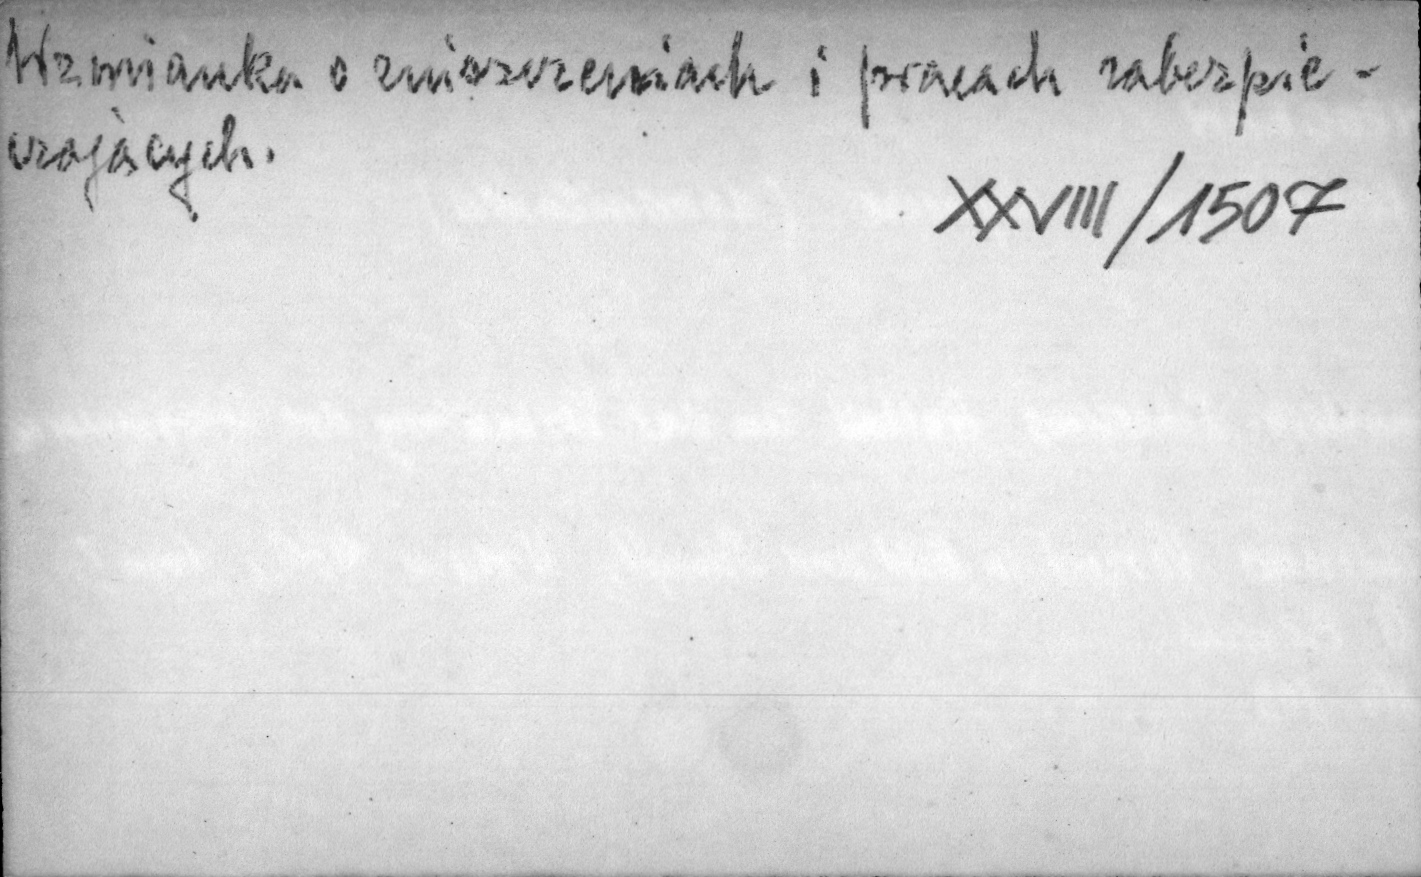 Wzmianka o zniszczeniach i pracach zabezpie-
czających.
XXVIIII/1507